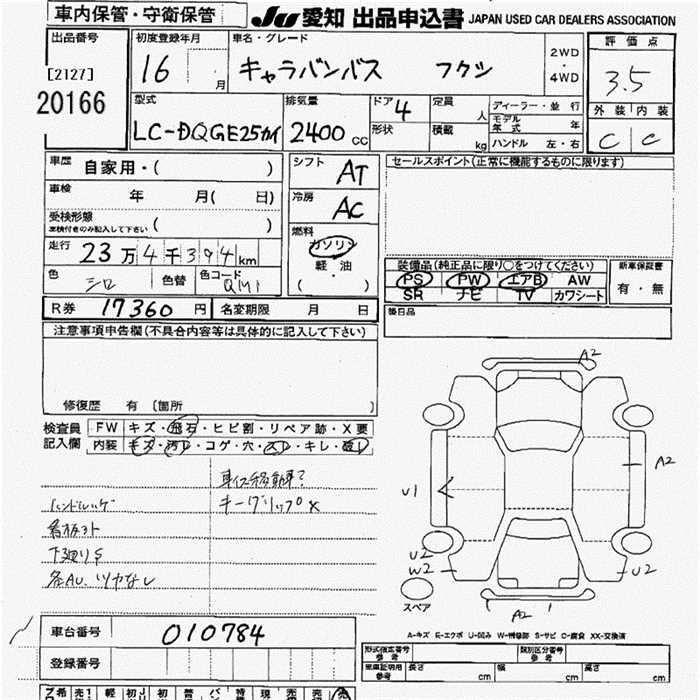 車内保管・守衛保管
JU 愛知 出品申込書 JAPAN USED CAR DEALERS ASSOCIATION
出品番号
[2127]
20166
初度登録年月
16 月
車名・グレード
キャラバンバス フクシ
2WD
・
4WD
評価点
3.5
型式
LC-DQGE25カイ
排気量
2400 cc
ドア 4
形状
定員 人
積載 kg
ディーラー・並行
モデル年式 年
ハンドル 左・右
外装 内装
C C
車歴 自家用・( )
車検 年 月( 日)
受検形態
車検付きのみ記入して下さい ( )
走行 23万4千394km
色 シロ 色替 色コード QM1
シフト AT
冷房 AC
燃料
ガソリン
軽・油
( )
セールスポイント(正常に機能するものに限ります)
装備品(純正品に限り○をつけてください)
PS PW エアB AW
SR ナビ TV カワシート
新車保証書
有・無
R券 17360 円 名変期限 月 日
後日品
注意事項申告欄(不具合内容等は具体的に記入して下さい)
修復歴 有 〔箇所 〕
検査員記入欄
FW キズ・飛石・ヒビ割・リペア跡・X要
内装 キズ・汚レ・コゲ・穴・スレ・キレ・破レ
車イス移動車?
ハンドルハゲ キーグリップ X
下廻りS
各AU、ツヤなし
A2
A2
U1
U2
W2
U2
スペア
A2
A-キズ E-エクボ U-凹み W-補修跡 S-サビ C-腐食 XX-交換済
車台番号 010784
登録番号
形式指定番号 参考 類別区分番号 参考
車庫証明用 参考 長さ cm 幅 cm 高さ cm